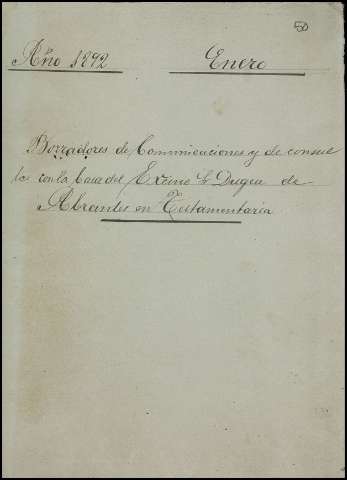 50
Año 1892 Enero
Borradores de Comunicaciones y de consul
ta con la Casa del Excmo Sr Duque de
Abrantes en Testamentaria